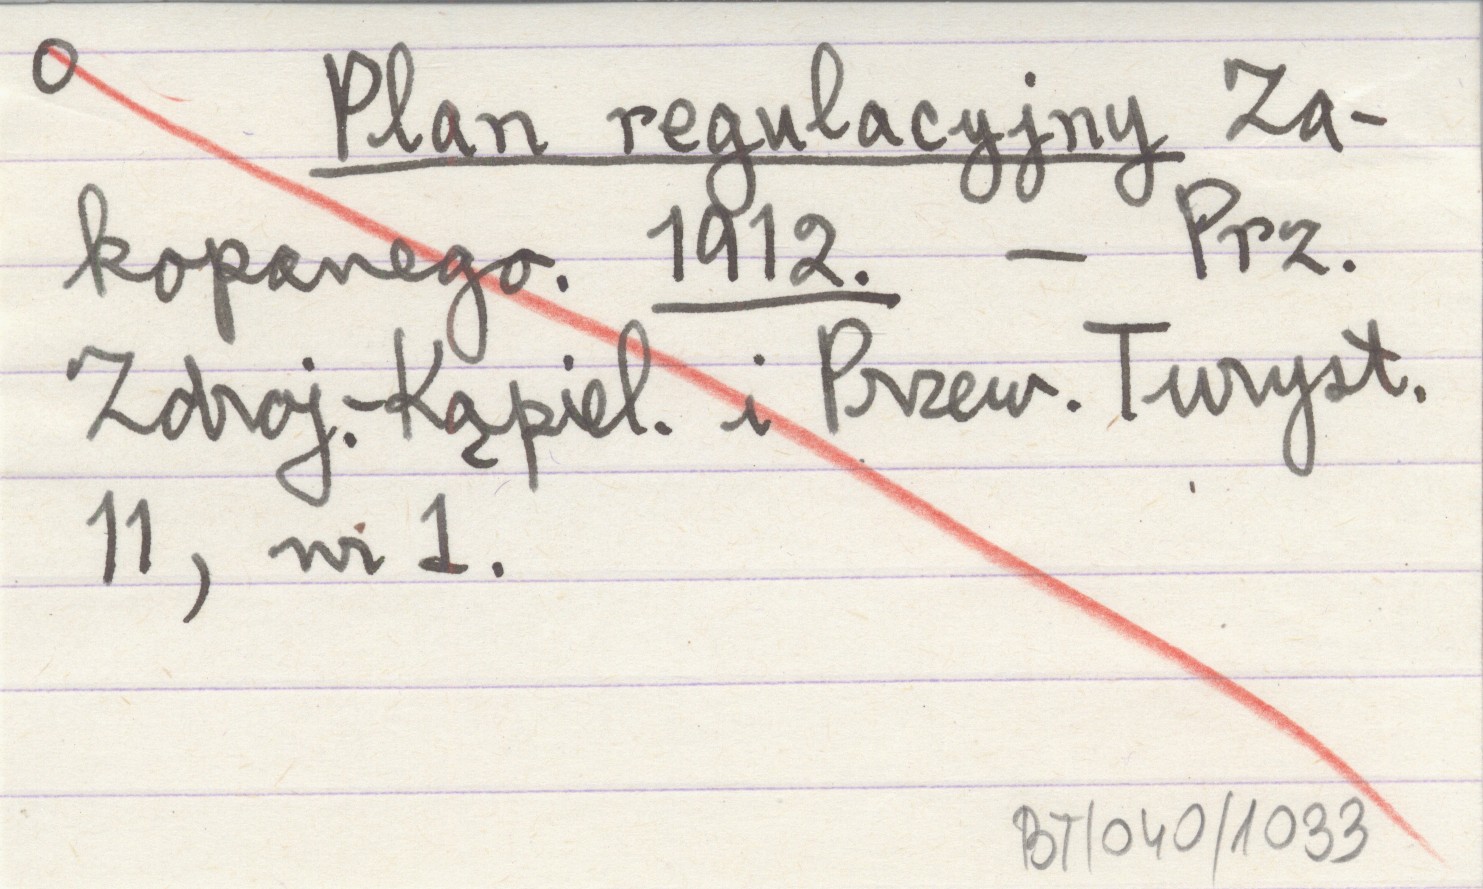 O
Plan regulacyjny Za-
kopanego. 1912. — Prz.
Zdroj.-Kąpiel. i Przew. Turyst.
11, nr 1.
BT/040/1033